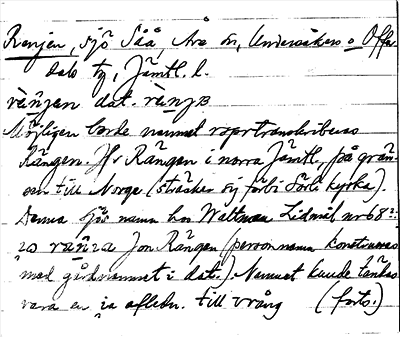 Renjen, sjö Såå, Åre sn, Undersåkers o Offer-
dals tg, Jämtl. l.
dat.
Möjligen borde namnet
Rängen. Jfr Rängen i norra Jämtl., på grän-
sen till Norge (sträcker sig förbi Sörli kyrka).
Denna sjös namn hos Waltman Lidmål nr 68
Jon Rängen (personnamn konstrueras
med gårdnamnet i dat.) Namnet kunde tänkas
vara en ia avledn. till vrång (forts.)